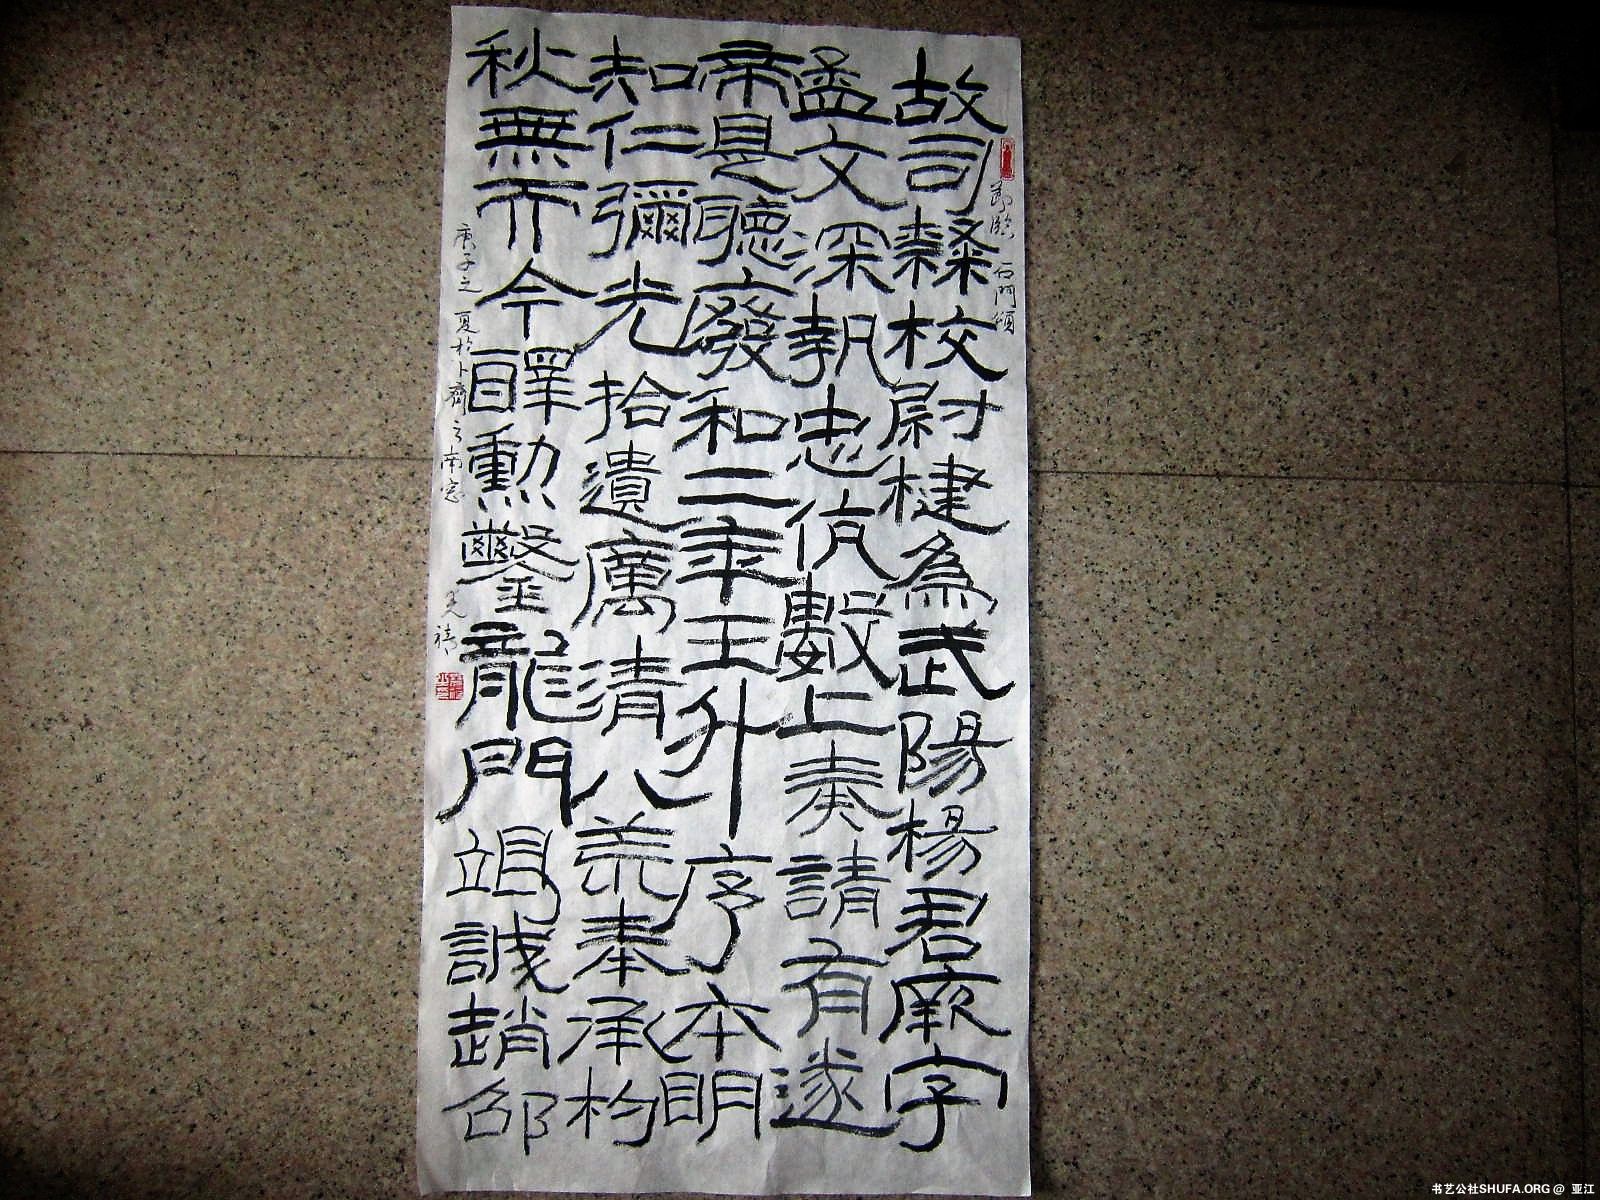 故司隸校尉楗為武陽楊君厥字
孟文深執忠伉數上奏請有遂
帝是聽發和二年王升序本明
知仁彌光拾遺厲清八荒奉承杓
秋無不今醳勳鑿龍門竭誠趙邵
節臨石門頌
庚子之夏於卜齋之南窗
书艺公社SHUFA.ORG @ 亚江